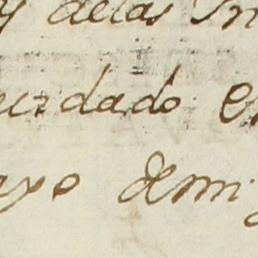 y delas In
cuidado e
ayo demi